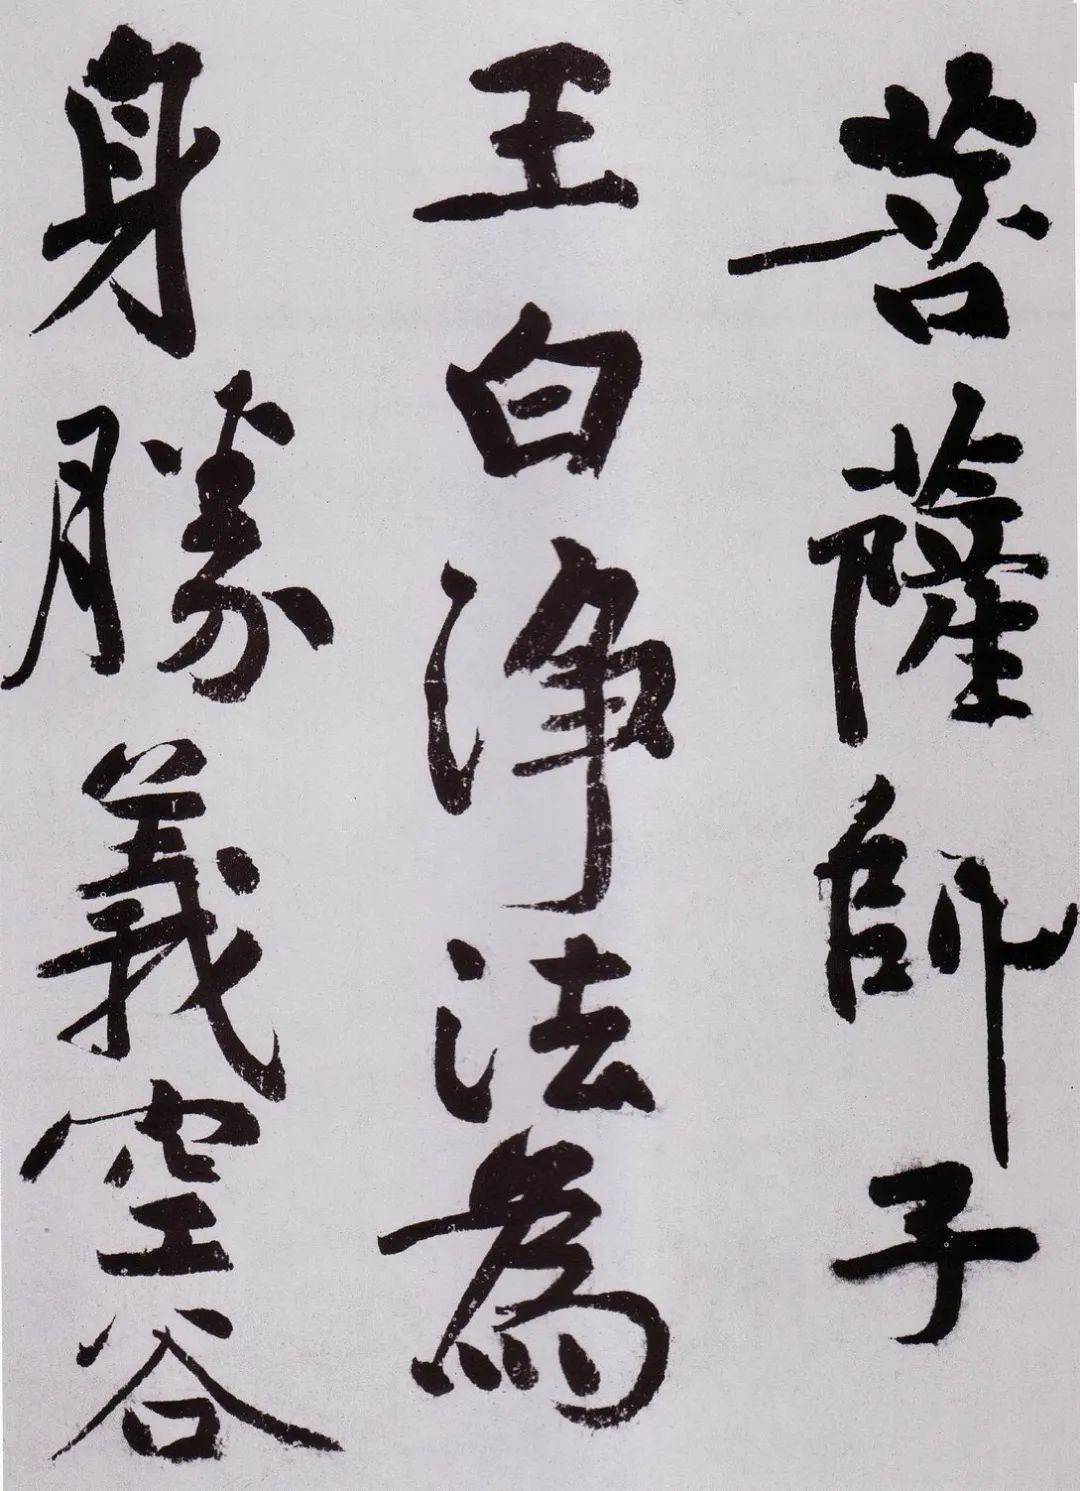 菩薩師子
王白淨法為
身勝義空谷